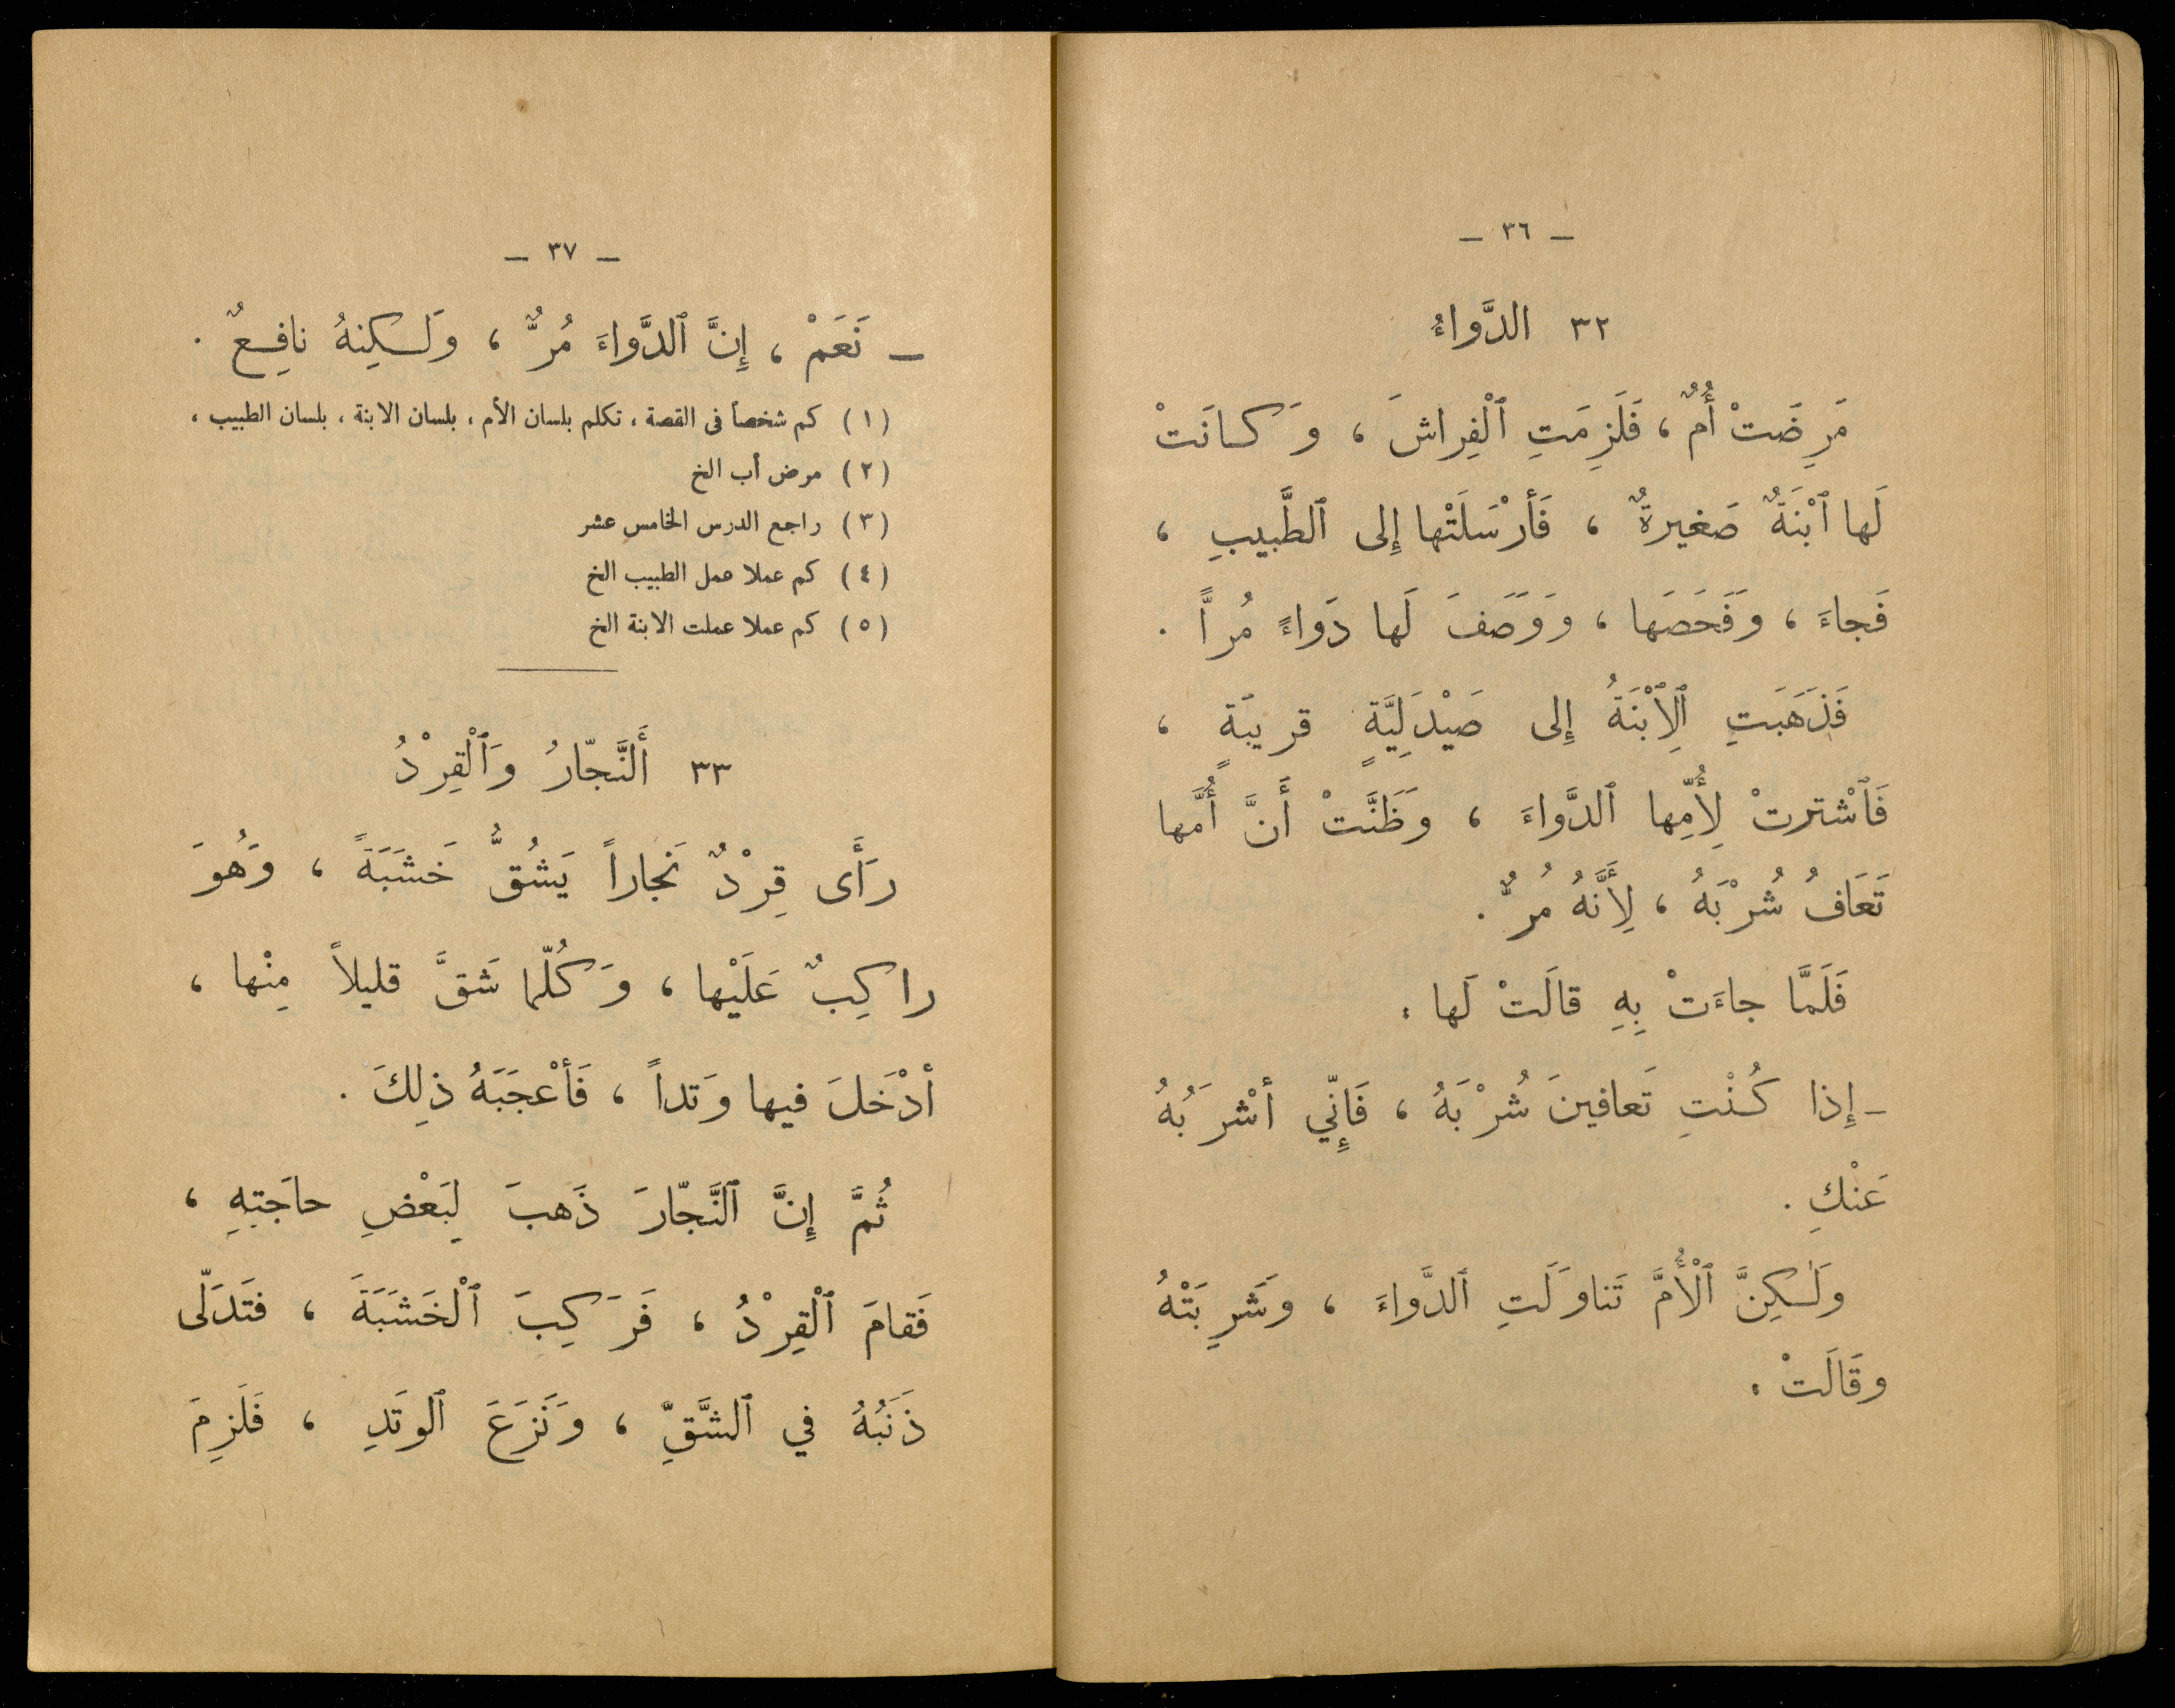 — ٣٦ —
٣٢ الدَّواءُ
مَرِضَتْ أُمٌّ، فَلَزِمَتِ ٱلْفِراشَ ، وَكانَتْ
لَها ٱبْنَةٌ صَغيرةٌ ، فَأرْسَلَتْها إِلى ٱلطَّبيبِ ،
فَجاءَ ، وَفَحَصَها ، وَوَصَفَ لَها دَواءً مُراًّ .
فَذَهَبَتِ ٱلِٱبْنَةُ إِلى صَيْدَلِيَّةٍ قريبَةٍ ،
فَٱشْترتْ لِأُمِّها ٱلدَّواءَ ، وَظَنَّتْ أَنَّ أُمَّها
تَعَافُ شُرْبَهُ ، لِأَنَّهُ مُرٌّ .
فَلَمَّا جاءَتْ بِهِ قالَتْ لَها :
— إِذا كُنْتِ تَعافينَ شُرْبَهُ ، فَإِنِّي أشْرَبُهُ
عَنْكِ .
وَلٰكِنَّ ٱلْأُمَّ تَناوَلَتِ ٱلدَّواءَ ، وَشَرِبَتْهُ
وقَالَتْ :
— ٣٧ —
— نَعَمْ ، إِنَّ ٱلدَّواءَ مُرٌّ ، ولَكِنهُ نافِعٌ .
(١) كم شخصاً فى القصة ، تكلم بلسان الأم ، بلسان الابنة ، بلسان الطبيب ،
(٢) مرض أب الخ
(٣) راجع الدرس الخامس عشر
(٤) كم عملا عمل الطبيب الخ
(٥) كم عملا عملت الابنة الخ
٣٣ أَلنَّجّارُ وَٱلْقِرْدُ
رَأَى قِرْدٌ نَجاراً يَشُقُّ خَشَبَةً ، وَهُوَ
راكِبٌ عَلَيْها ، وَكُلَّما شَقَّ قليلاً مِنْها ،
أدْخَلَ فيها وَتداً ، فَأعْجَبَهُ ذلِكَ .
ثُمَّ إِنَّ ٱلنَّجّارَ ذَهبَ لِبَعْضِ حاجَتِهِ ،
فَقامَ ٱلْقِرْدُ ، فَرَكِبَ ٱلْخَشَبَةَ ، فتَدَلّى
ذَنَبُهُ في ٱلشَّقِّ ، وَنَزَعَ ٱلوتَدِ ، فَلَزِمَ